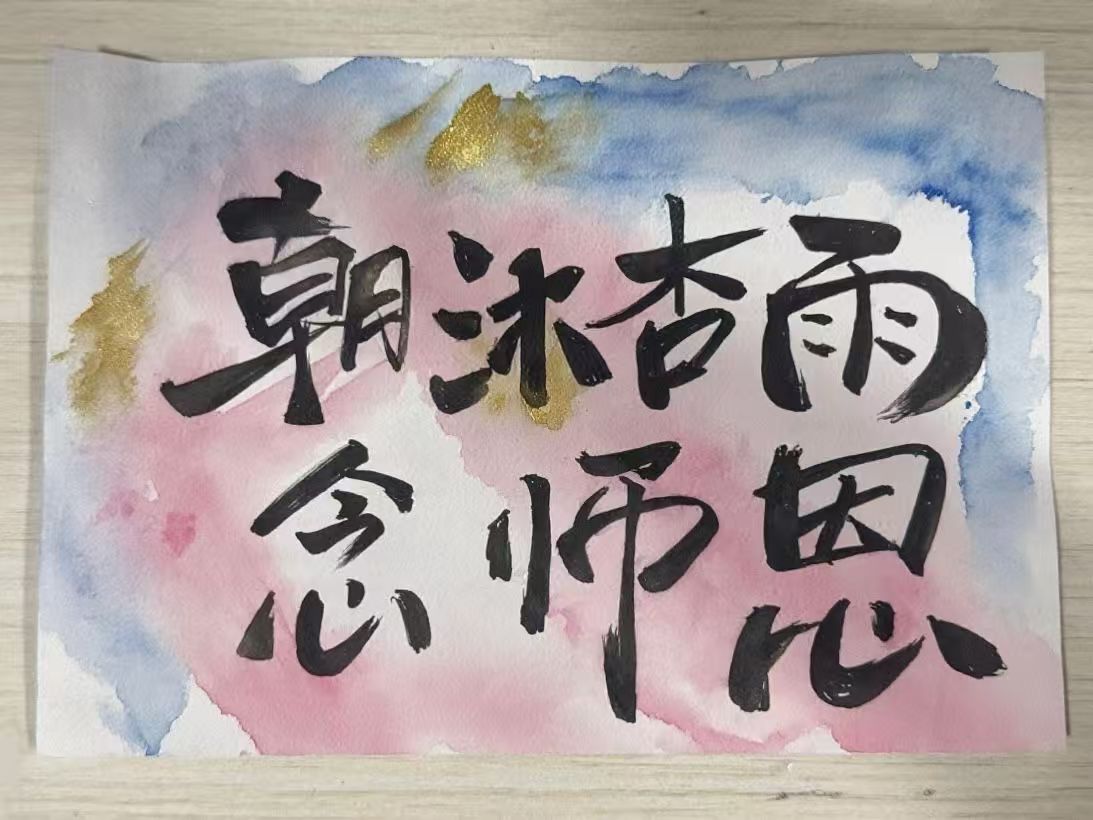 朝沐杏雨
念师恩